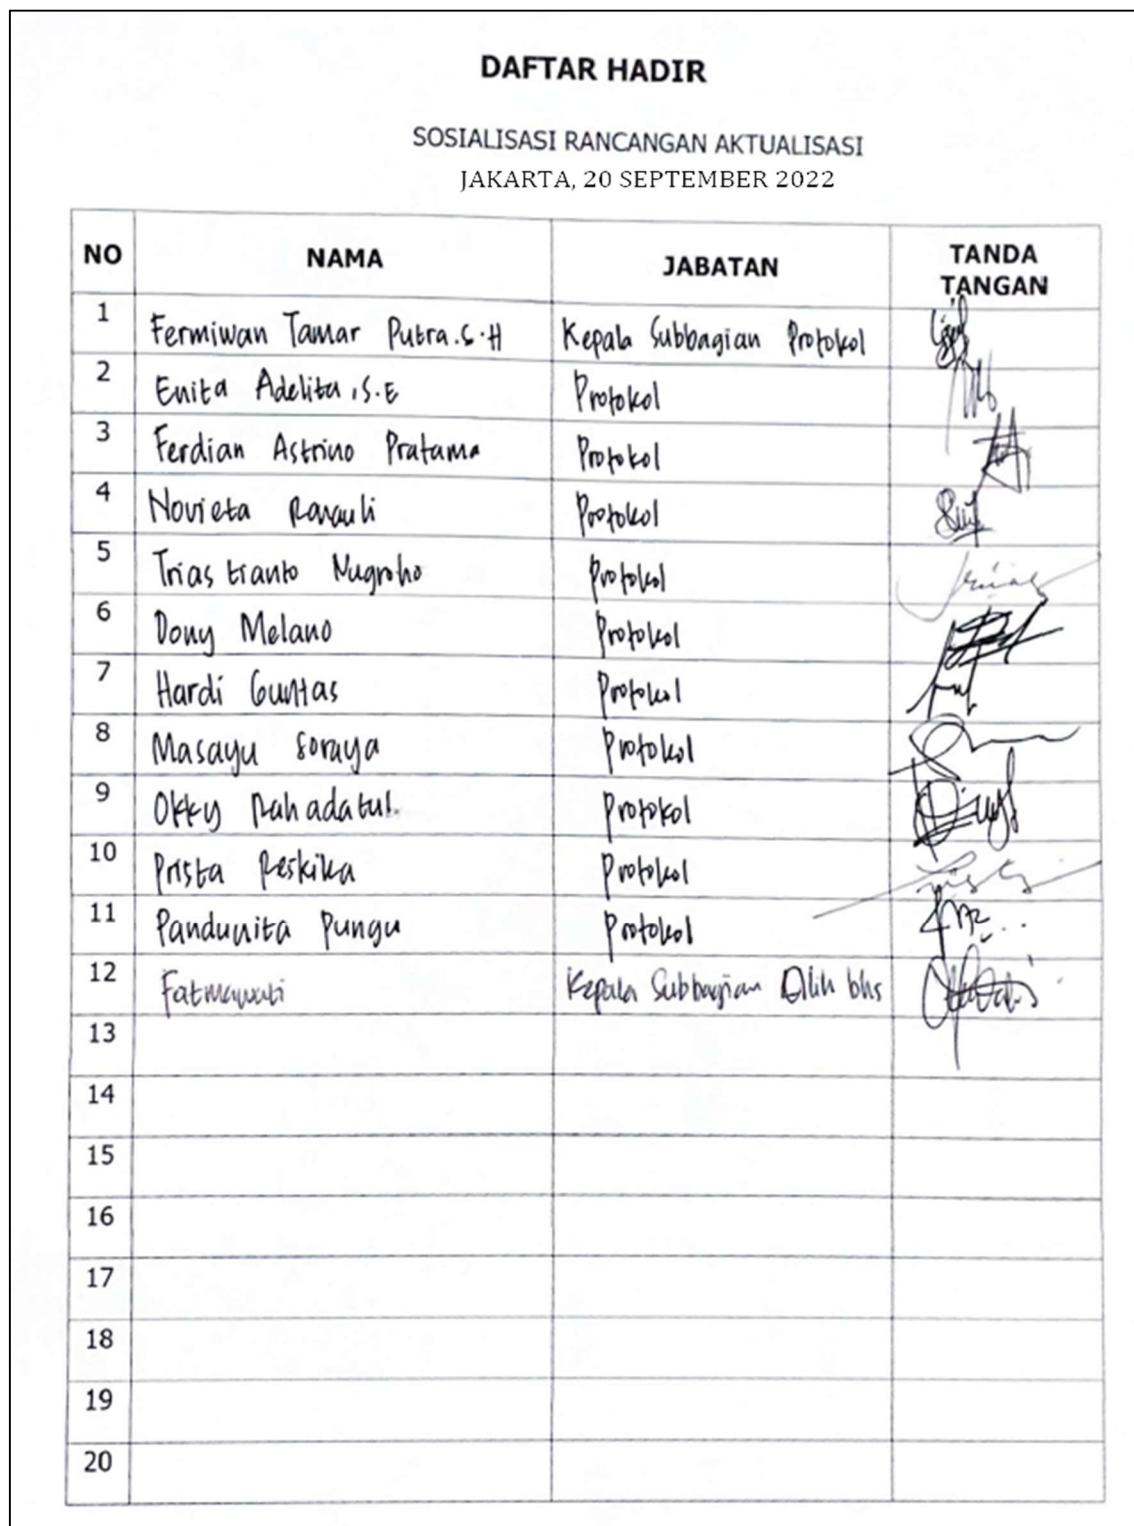 DAFTAR HADIR
SOSIALISASI RANCANGAN AKTUALISASI
JAKARTA, 20 SEPTEMBER 2022
NO NAMA JABATAN TANDA TANGAN
1 Fermiwan Tamar Putra.S.H Kepala Subbagian Protokol
2 Enita Adelita, S.E Protokol
3 Ferdian Astrino Pratama Protokol
4 Novieta Protokol
5 Triastianto Nugroho Protokol
6 Dony Melano Protokol
7 Hardi Guntas Protokol
8 Masayu Soraya Protokol
9 Okky Rahadatul Protokol
10 Prista Reskika Protokol
11 Pandunita Pungu Protokol
12 Fatmawati Kepala Subbagian Alih bhs
13
14
15
16
17
18
19
20